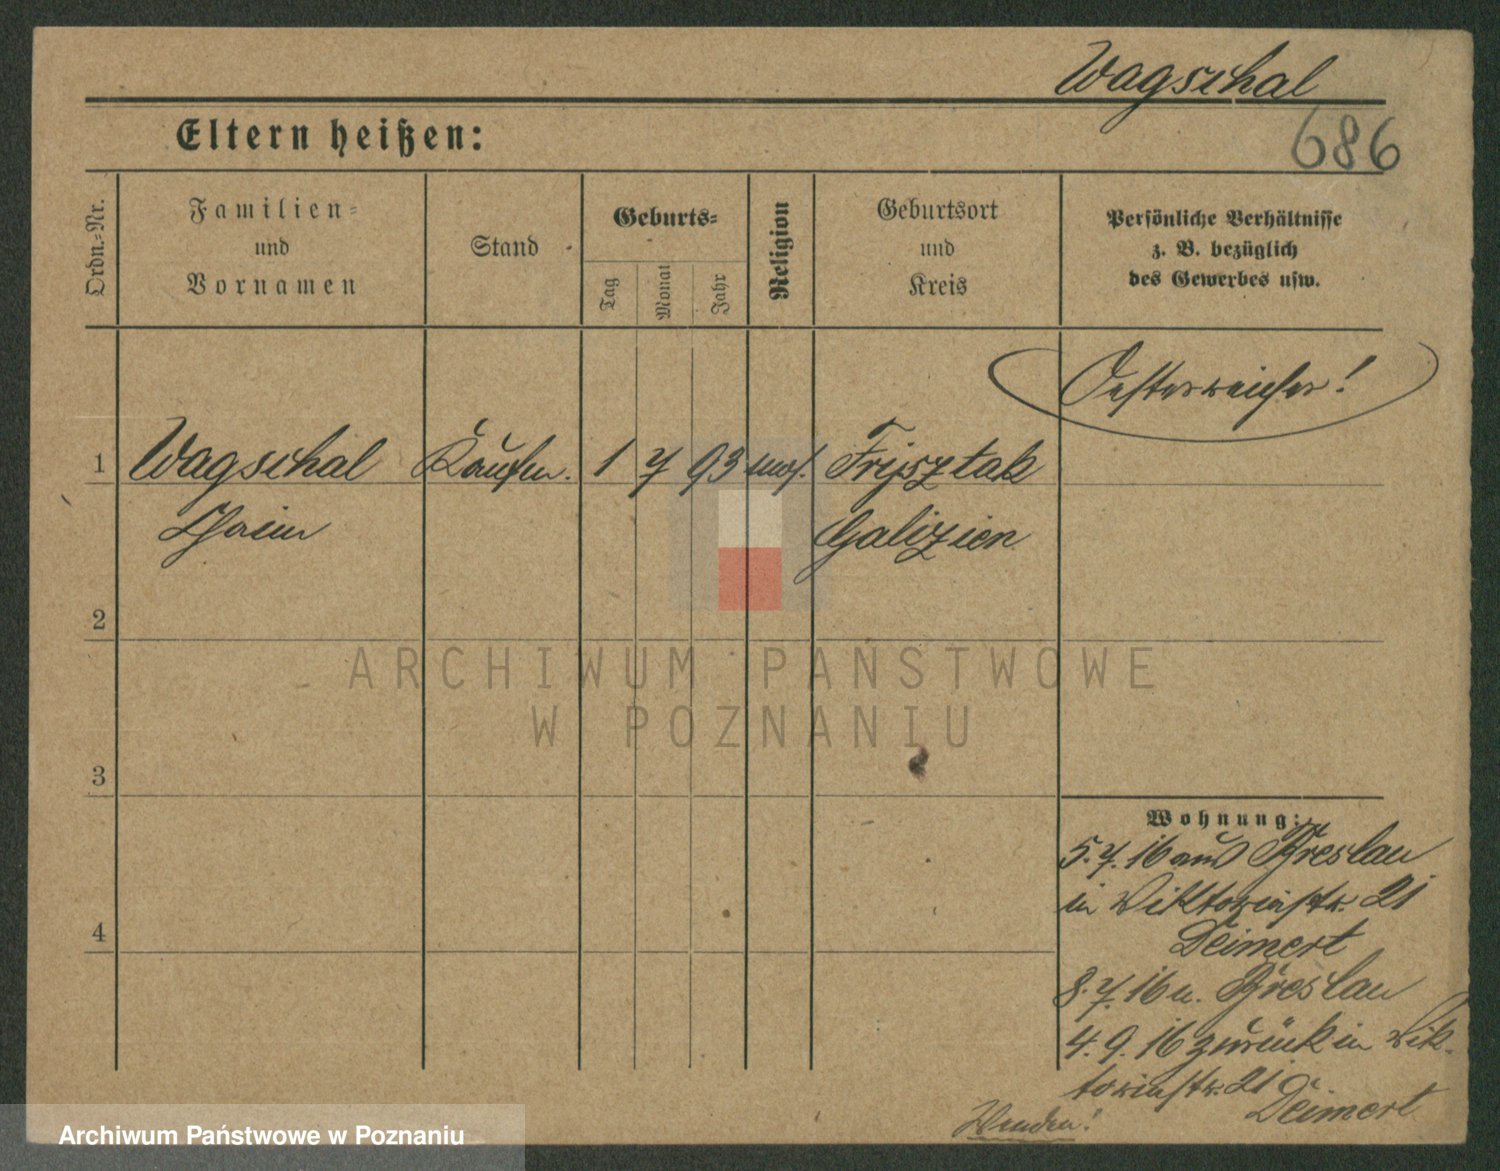 Wagschal
Eltern heißen:
686
Ordn.-Nr.
Familien-
und
Vornamen
Stand
Geburts-
Tag
Monat
Jahr
Religion
Geburtsort
und
Kreis
Persönliche Verhältnisse
z. B. bezüglich
des Gewerbes usw.
Oesterreicher!
1 Wagschal Kaufm. 1 7 93 mos. Frysztak
Chaim Galizien
2
3
4
Wohnung:
5.7.16 aus Breslau
in Viktoriastr. 21
Deimert
8.7.16 n. Breslau
4.9.16 zurück in Vik-
toriastr. 21 Deimert
Wenden!
ARCHIWUM PAŃSTWOWE
W POZNANIU
Archiwum Państwowe w Poznaniu